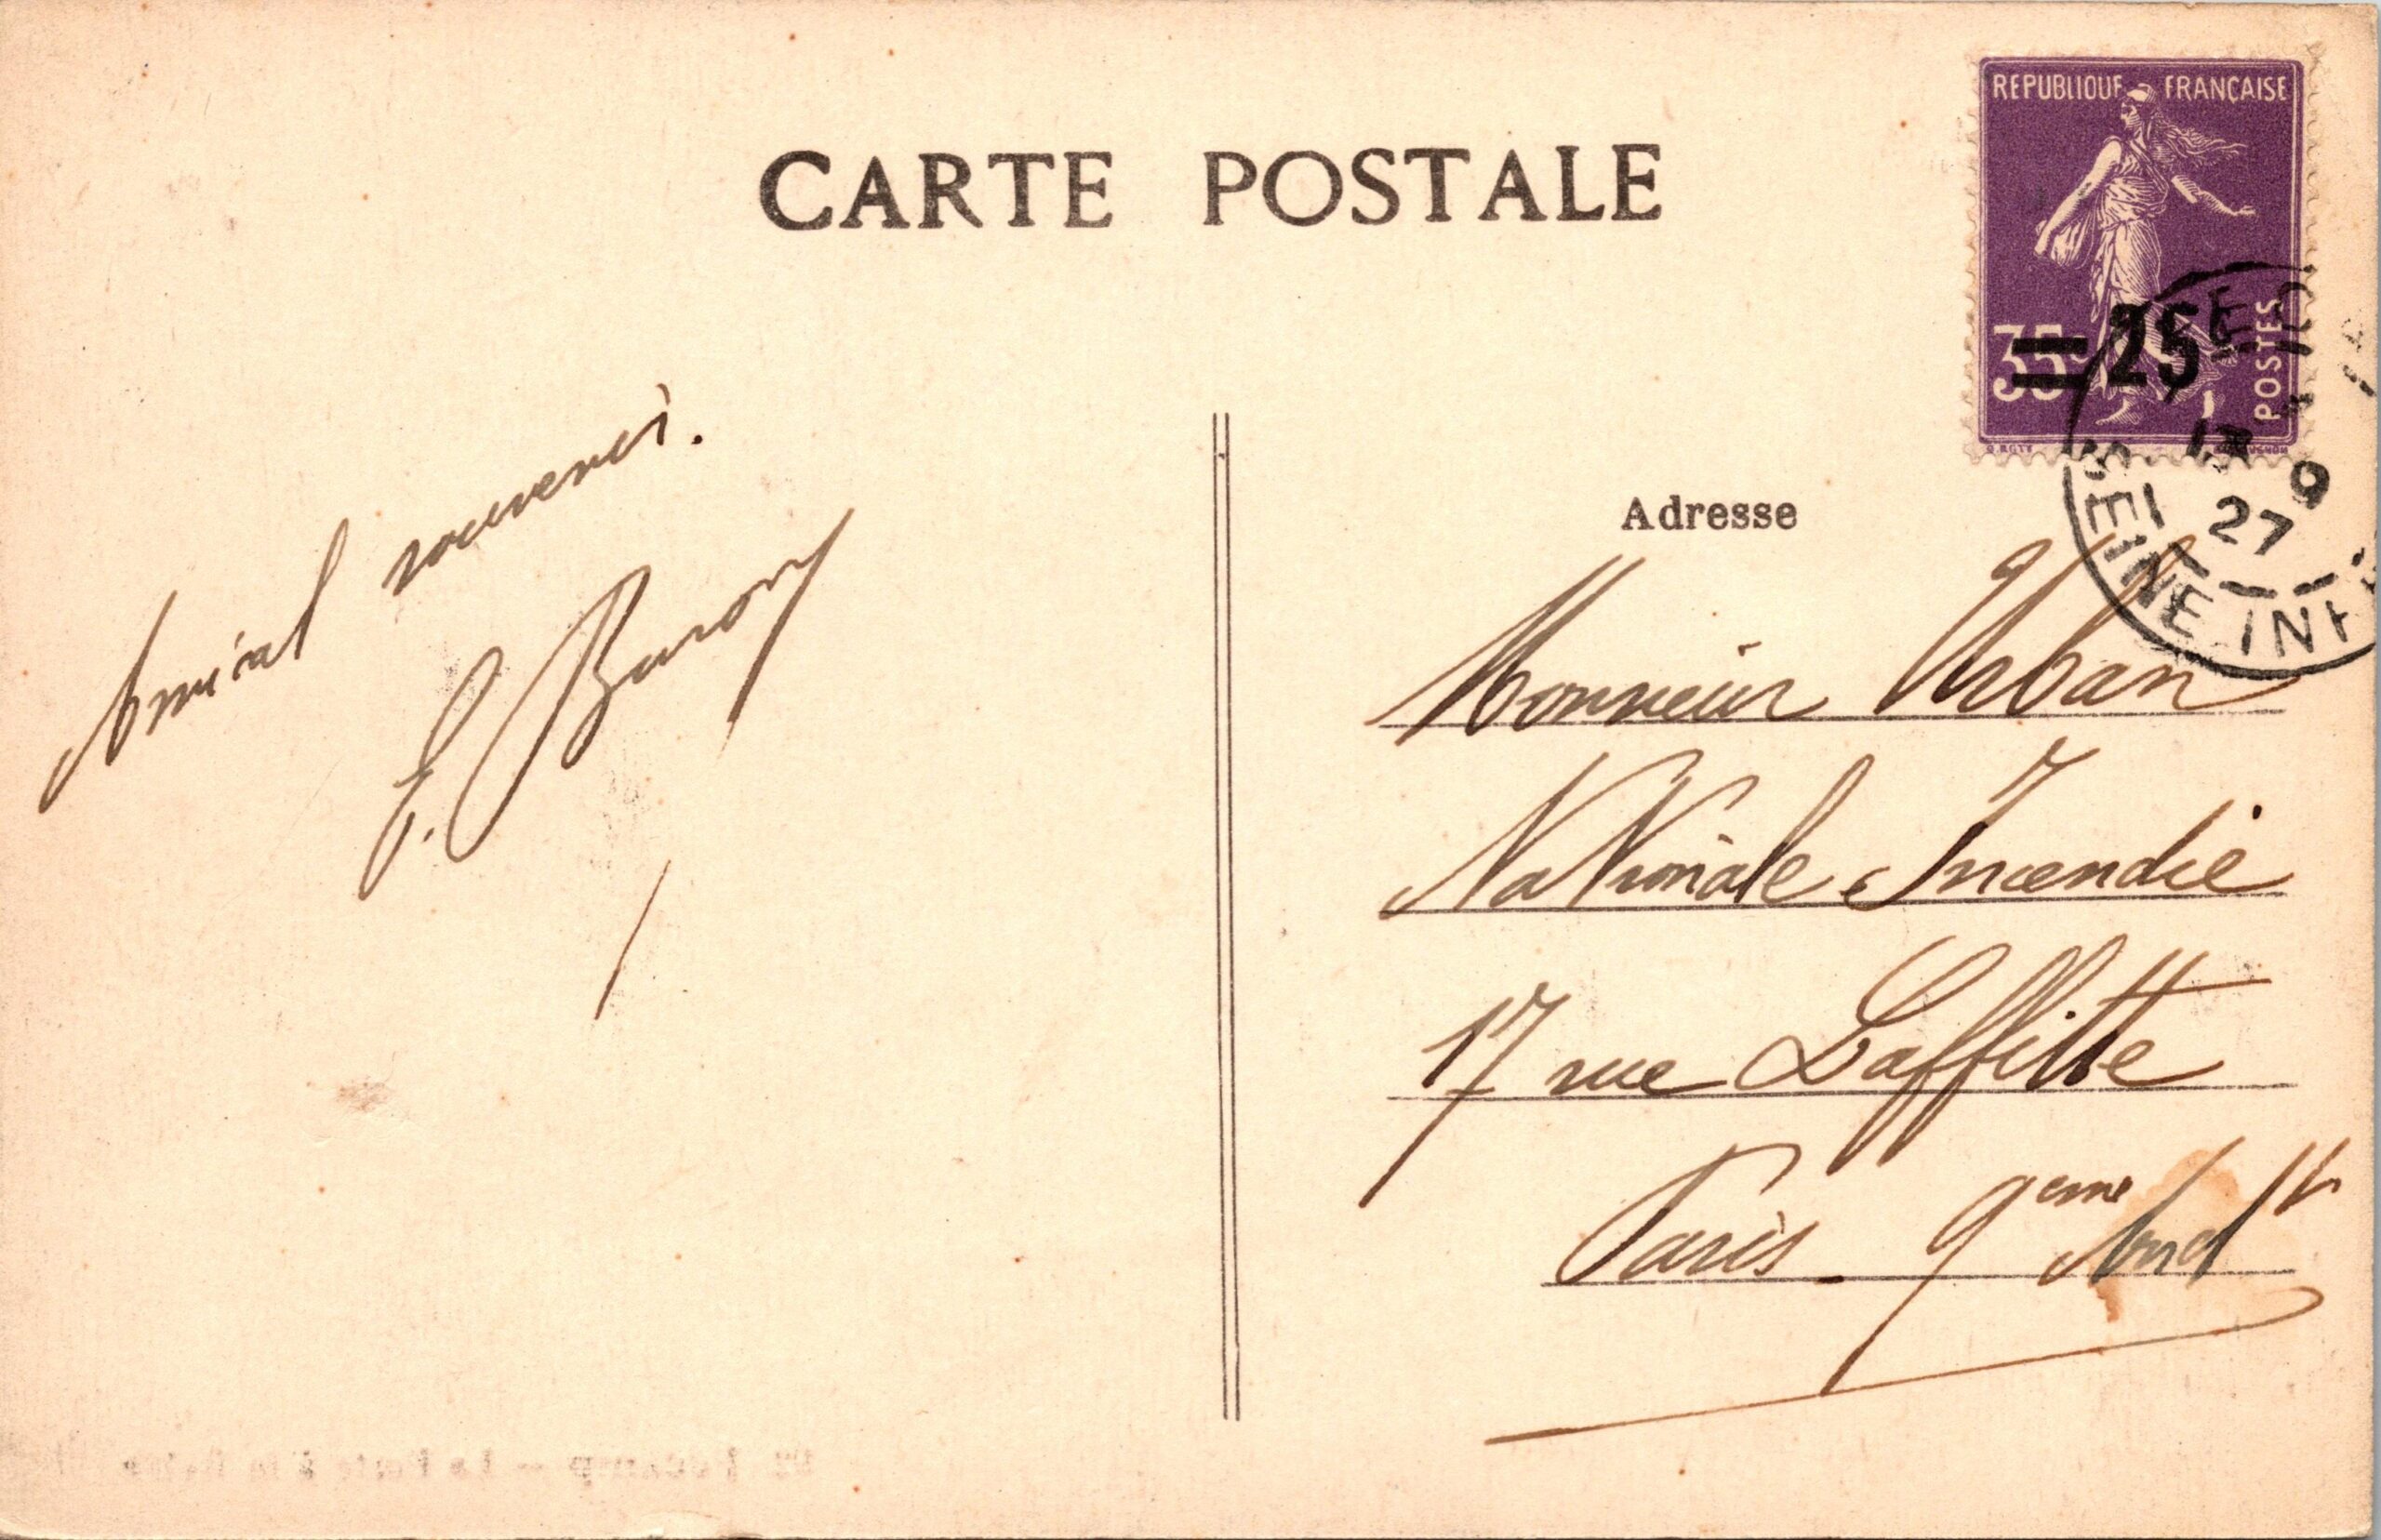 CARTE POSTALE
REPUBLIQUE FRANÇAISE
35c
25c
POSTES
9
27
SEINE INF
Amical souvenir.
Adresse
Monsieur Urban
Nationale Incendie
17 rue Laffitte
Paris - 9eme Arrdt